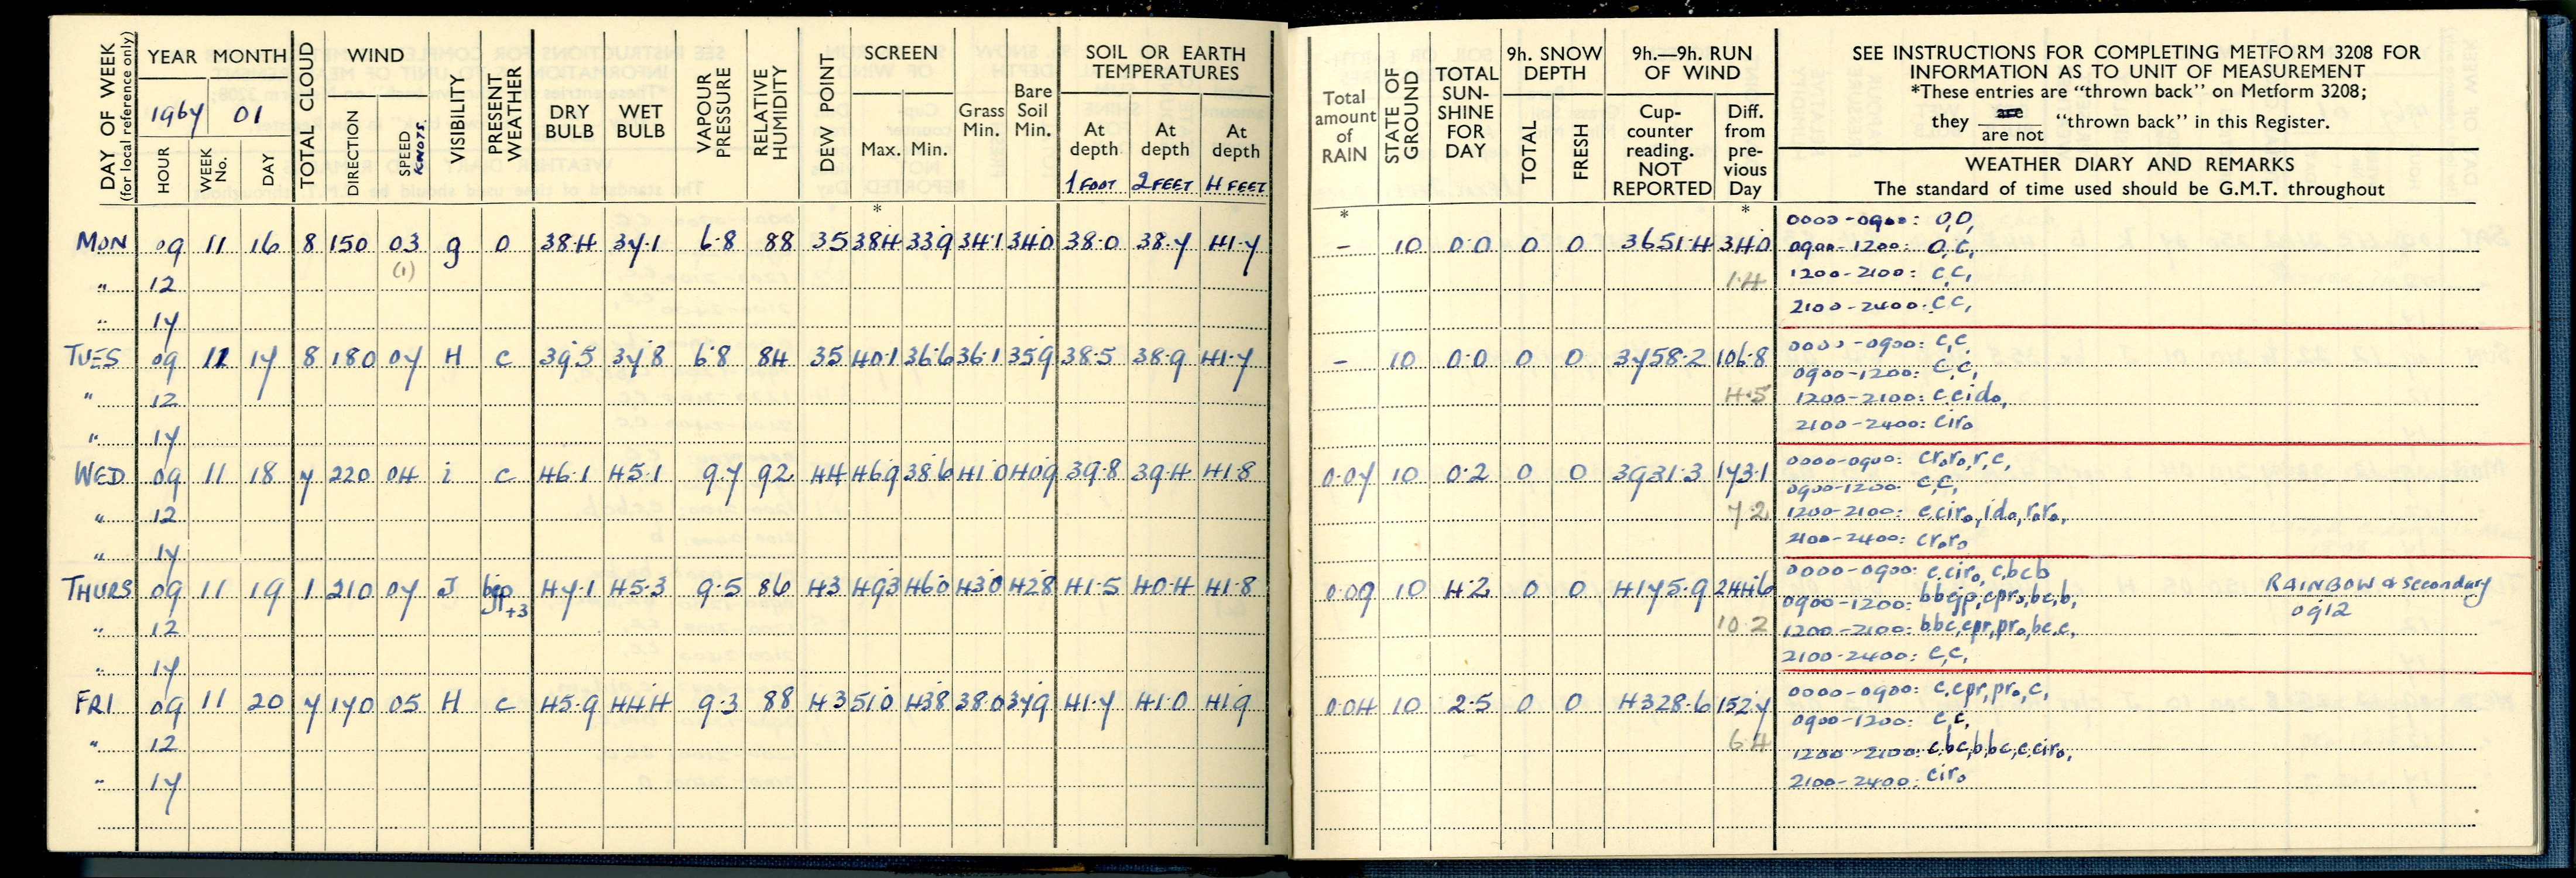 DAY OF WEEK (for local reference only) YEAR MONTH TOTAL CLOUD WIND VISIBILITY PRESENT WEATHER DRY BULB WET BULB VAPOUR PRESSURE RELATIVE HUMIDITY DEW POINT SCREEN Grass Min. Bare Soil Min. SOIL OR EARTH TEMPERATURES
1967 01
HOUR WEEK No. DAY DIRECTION SPEED KNOTS. Max. Min. At depth At depth At depth
1 FOOT 2 FEET 4 FEET
*
MON 09 11 16 8 150 03 g O 38.4 37.1 6.8 88 35 38.4 33.9 34.1 34.0 38.0 38.7 41.7
(1)
" 12
" 17
TUES 09 11 17 8 180 07 H C 39.5 37.8 6.8 84 35 40.1 36.6 36.1 35.9 38.5 38.9 41.7
" 12
" 17
WED 09 11 18 7 220 04 i C 46.1 45.1 9.7 92 44 46.9 38.6 41.0 40.9 39.8 39.4 41.8
" 12
" 17
THURS 09 11 19 1 210 07 J +3 47.1 45.3 9.5 86 43 49.3 46.0 43.0 42.8 41.5 40.4 41.8
" 12
" 17
FRI 09 11 20 7 170 05 H C 45.9 44.4 9.3 88 43 51.0 43.8 38.0 37.9 41.7 41.0 41.9
" 12
" 17
Total amount of RAIN STATE OF GROUND TOTAL SUN-SHINE FOR DAY 9h. SNOW DEPTH 9h.—9h. RUN OF WIND
TOTAL FRESH Cup-counter reading. NOT REPORTED Diff. from pre-vious Day
SEE INSTRUCTIONS FOR COMPLETING METFORM 3208 FOR
INFORMATION AS TO UNIT OF MEASUREMENT
*These entries are "thrown back" on Metform 3208;
they are
are not "thrown back" in this Register.
WEATHER DIARY AND REMARKS
The standard of time used should be G.M.T. throughout
* *
– 10 0.0 0 0 3651.4 34.0
1.4
0000-0900: O,O,
0900-1200: O,C,
1200-2100: C,C,
2100-2400: C,C,
– 10 0.0 0 0 3758.2 106.8
4.5
0000-0900: C,C,
0900-1200: C,C,
1200-2100: c cido,
2100-2400: ciro
0.07 10 0.2 0 0 3931.3 173.1
7.2
0000-0900: croro,r,c,
0900-1200: C,C,
1200-2100: c ciro,ido,roro,
2100-2400: croro
0.09 10 4.2 0 0 4175.9 244.6
10.2
0000-0900: c ciro, c,bcb
0900-1200: bbcjp,cpro,bc,b,
1200-2100: bbc,cpr,pro,bc,c,
2100-2400: C,C,
RAINBOW & Secondary
0912
0.04 10 2.5 0 0 4328.6 152.7
6.4
0000-0900: c,cpr,pro,c,
0900-1200: C,C,
1200-2100: c,bc,bbc,c,ciro,
2100-2400: ciro